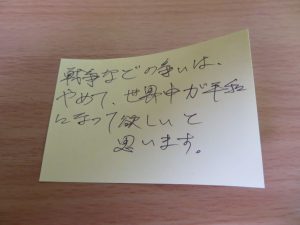 戦争などの争いは、
やめて、世界中が平和
になって欲しいと
思います。